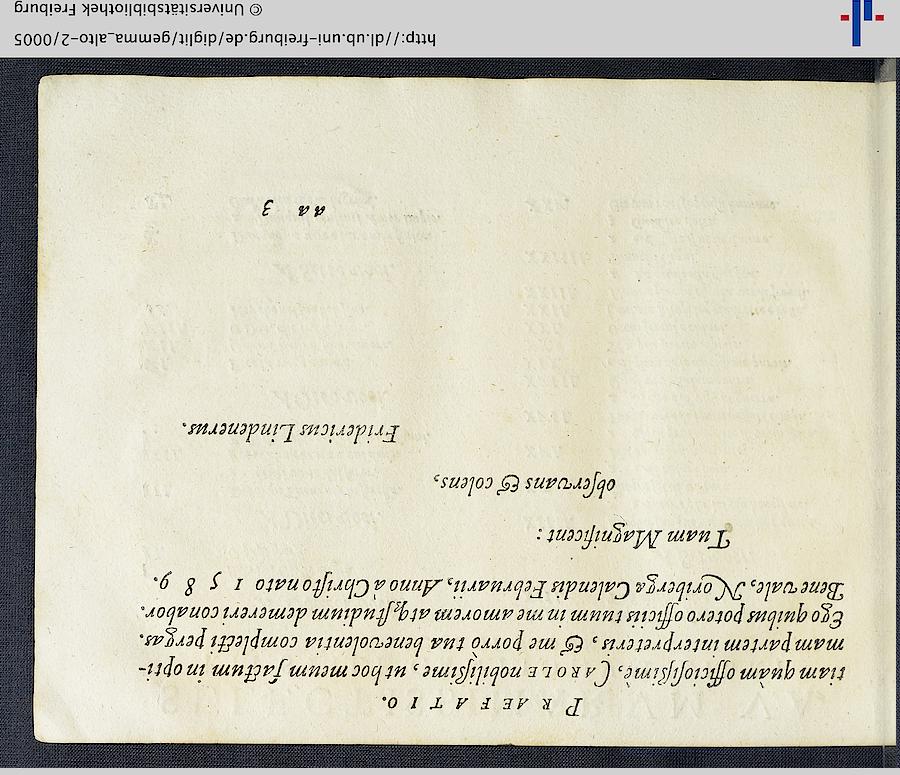 PRAEFATIO.
tiam quàm officiosissimè, CAROLE nobilissime, ut hoc meum factum in opti-
mam partem interpreteris, & me porro tua benevolentia complecti pergas.
Ego quibus potero officiis tuum in me amorem atq; studium demereri conabor.
Bene vale, Noriberga Calendis Februarii, Anno à Christo nato 1589.
Tuam Magnificent:
observans & colens,
Fridericus Lindenerus.
aa 3
http://dl.ub.uni-freiburg.de/diglit/gemma_alto-2/0005
© Universitätsbibliothek Freiburg